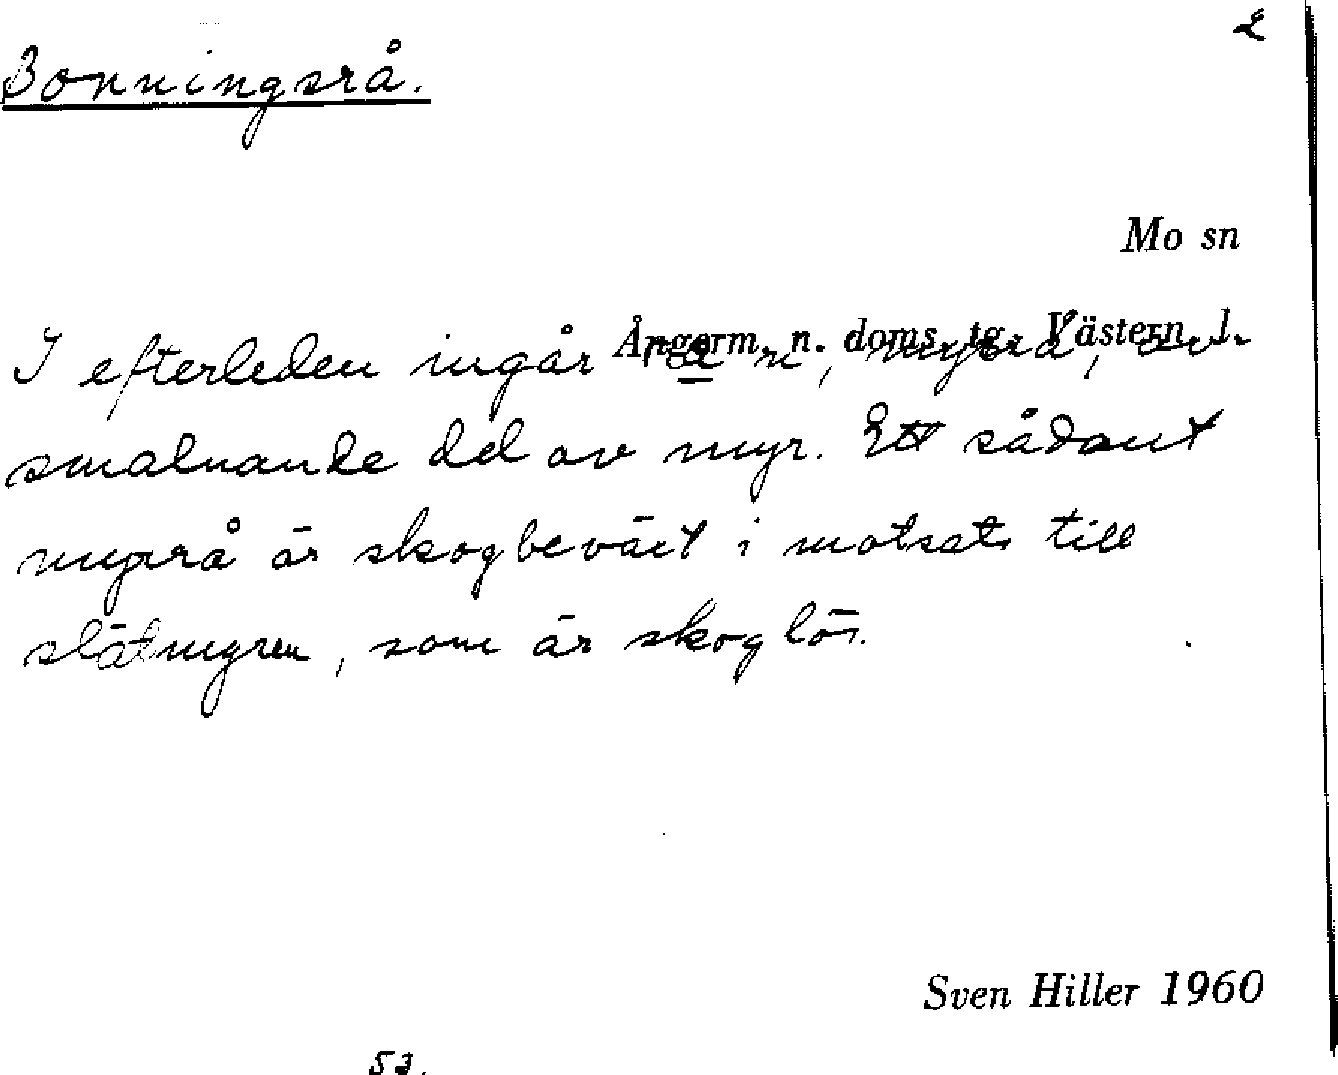 2
Bonningsrå.
Mo sn
Ångerm. n. doms. tg. Västern. l.
I efterleden ingår rå n, myrrå, av
smalnande del av myr. Ett sådant
myrrå är skogbeväxt i motsats till
slåtmyren, som är skoglös.
Sven Hiller 1960
53.